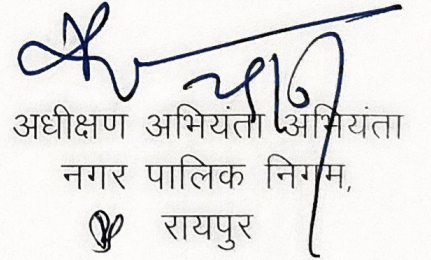 अधीक्षण अभियंता अभियंता
नगर पालिक निगम,
रायपुर